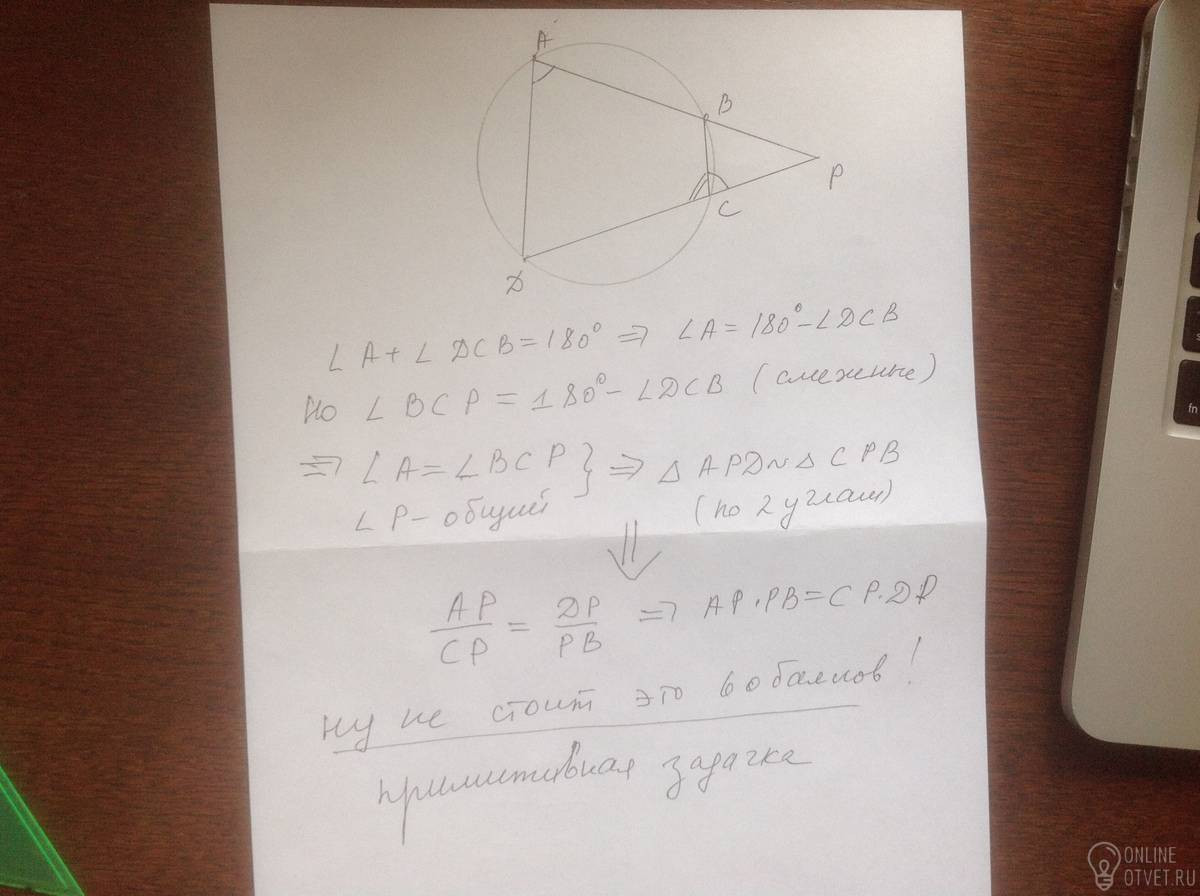 A
B
P
C
D
∠A + ∠DCB = 180° ⇒ ∠A = 180° - ∠DCB
Но ∠BCP = 180° - ∠DCB (смежные)
⇒ ∠A = ∠BCP } ⇒ △APD ~ △CPB
∠P - общий (по 2 углам)
⇓
AP/CP = DP/PB ⇒ AP·PB = CP·DP
ну не стоит это 60 баллов!
примитивная задачка
fn
ONLINE
OTVET.RU